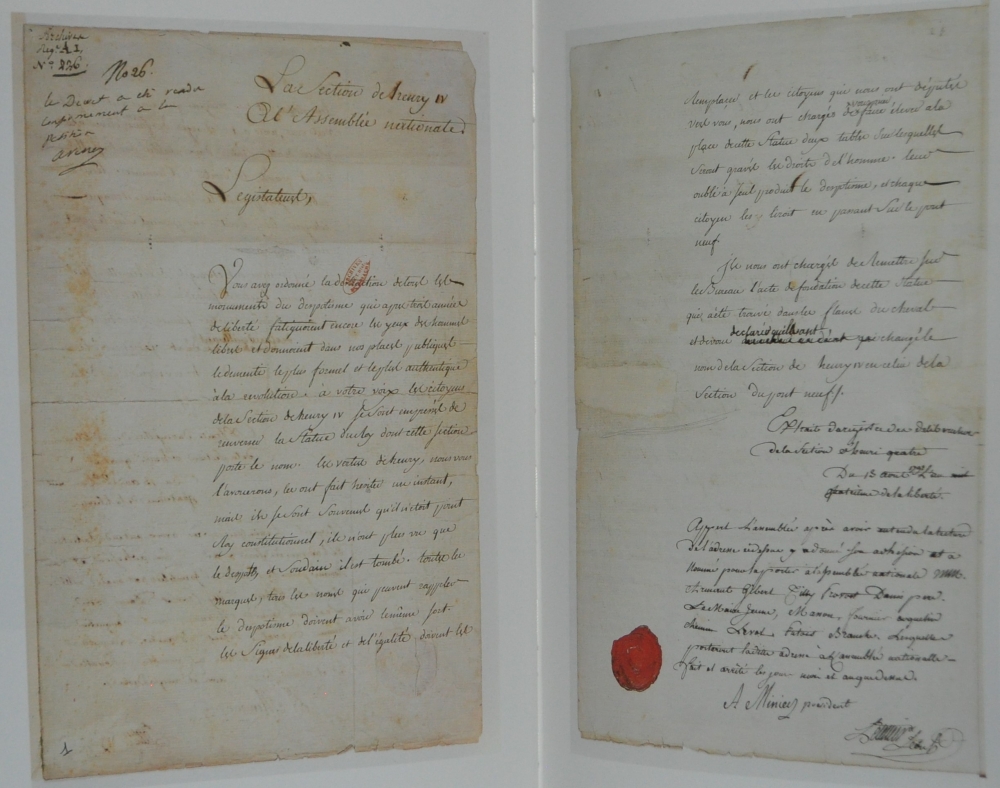 Archives
Reg. A I,
N° 236.
No 26.
le Decret a été rendu
conformement à la
petition
La Section de henry IV
A l'Assemblée nationale
Legislateurs,
Vous avez ordonné la de toul les
monuments du despotisme qui apres troit année
de liberté fatiguoient encore les yeux des hommes
libres et donnoient dans nos places publiques
le dementi le plus formel et le plus authentique
à la revolution. à votre voix les citoyens
de la Section de henry IV se sont empressés de
renverser la Statue du Roy dont cette section
porte le nom. les vertus de henry, nous vous
l'avouerons, les ont fait hesiter un instant,
mais ils se sont souvenus qu'il n'étoit point
Roy constitutionnel, ils n'ont plus vu que
le despote et soudain il est tombé. toutes les
marques, tous les noms qui peuvent rappeler
le despotisme doivent avoir le même sort
les signes de la liberté et de l'égalité doivent les
1
24
remplacer et les citoyens qui nous ont députés
vers vous, nous ont chargés faire élever a la
place de cette Statue deux tables sur lesquelles
seront gravés les droits de l'homme. leur
oubli a seul produit le despotisme, et chaque
citoyen les y liroit en passant sur le pont
neuf.
ils nous ont chargés de remettre sur
les Bureau l'acte de fondation de cette Statue
qui a été trouvé dans les flancs du cheval
et de vous declarer qu'ils ont changé le
nom de la Section de henry IV en celui de la
Section du pont neuf.
Extrait du registre des deliberations
de la Section d'henri quatre
Du 13 aout l'an
quatrieme de la liberté.
Appert L'assemblée après avoir entendu lecture
de l'adresse cidessus y a donné son adhesion et a
nommé pour la porter à l'assemblée nationale MM.
Gilbert
Le Maire jeune, Manon, fournier
Lesquels
porteront la dite adresse à l'assemblée nationale
fait et arreté les jour mois et an que dessus.
A Minier president